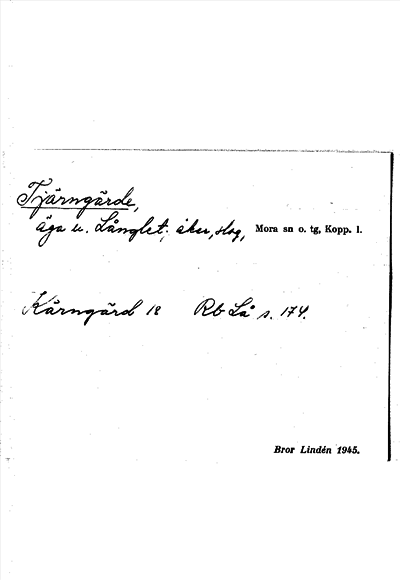 Tjärngärde,
äga u. Långlet; åker, slog, Mora sn o. tg, Kopp. l.
Kärngärd 18 Rb Lå s. 174.
Bror Lindén 1945.